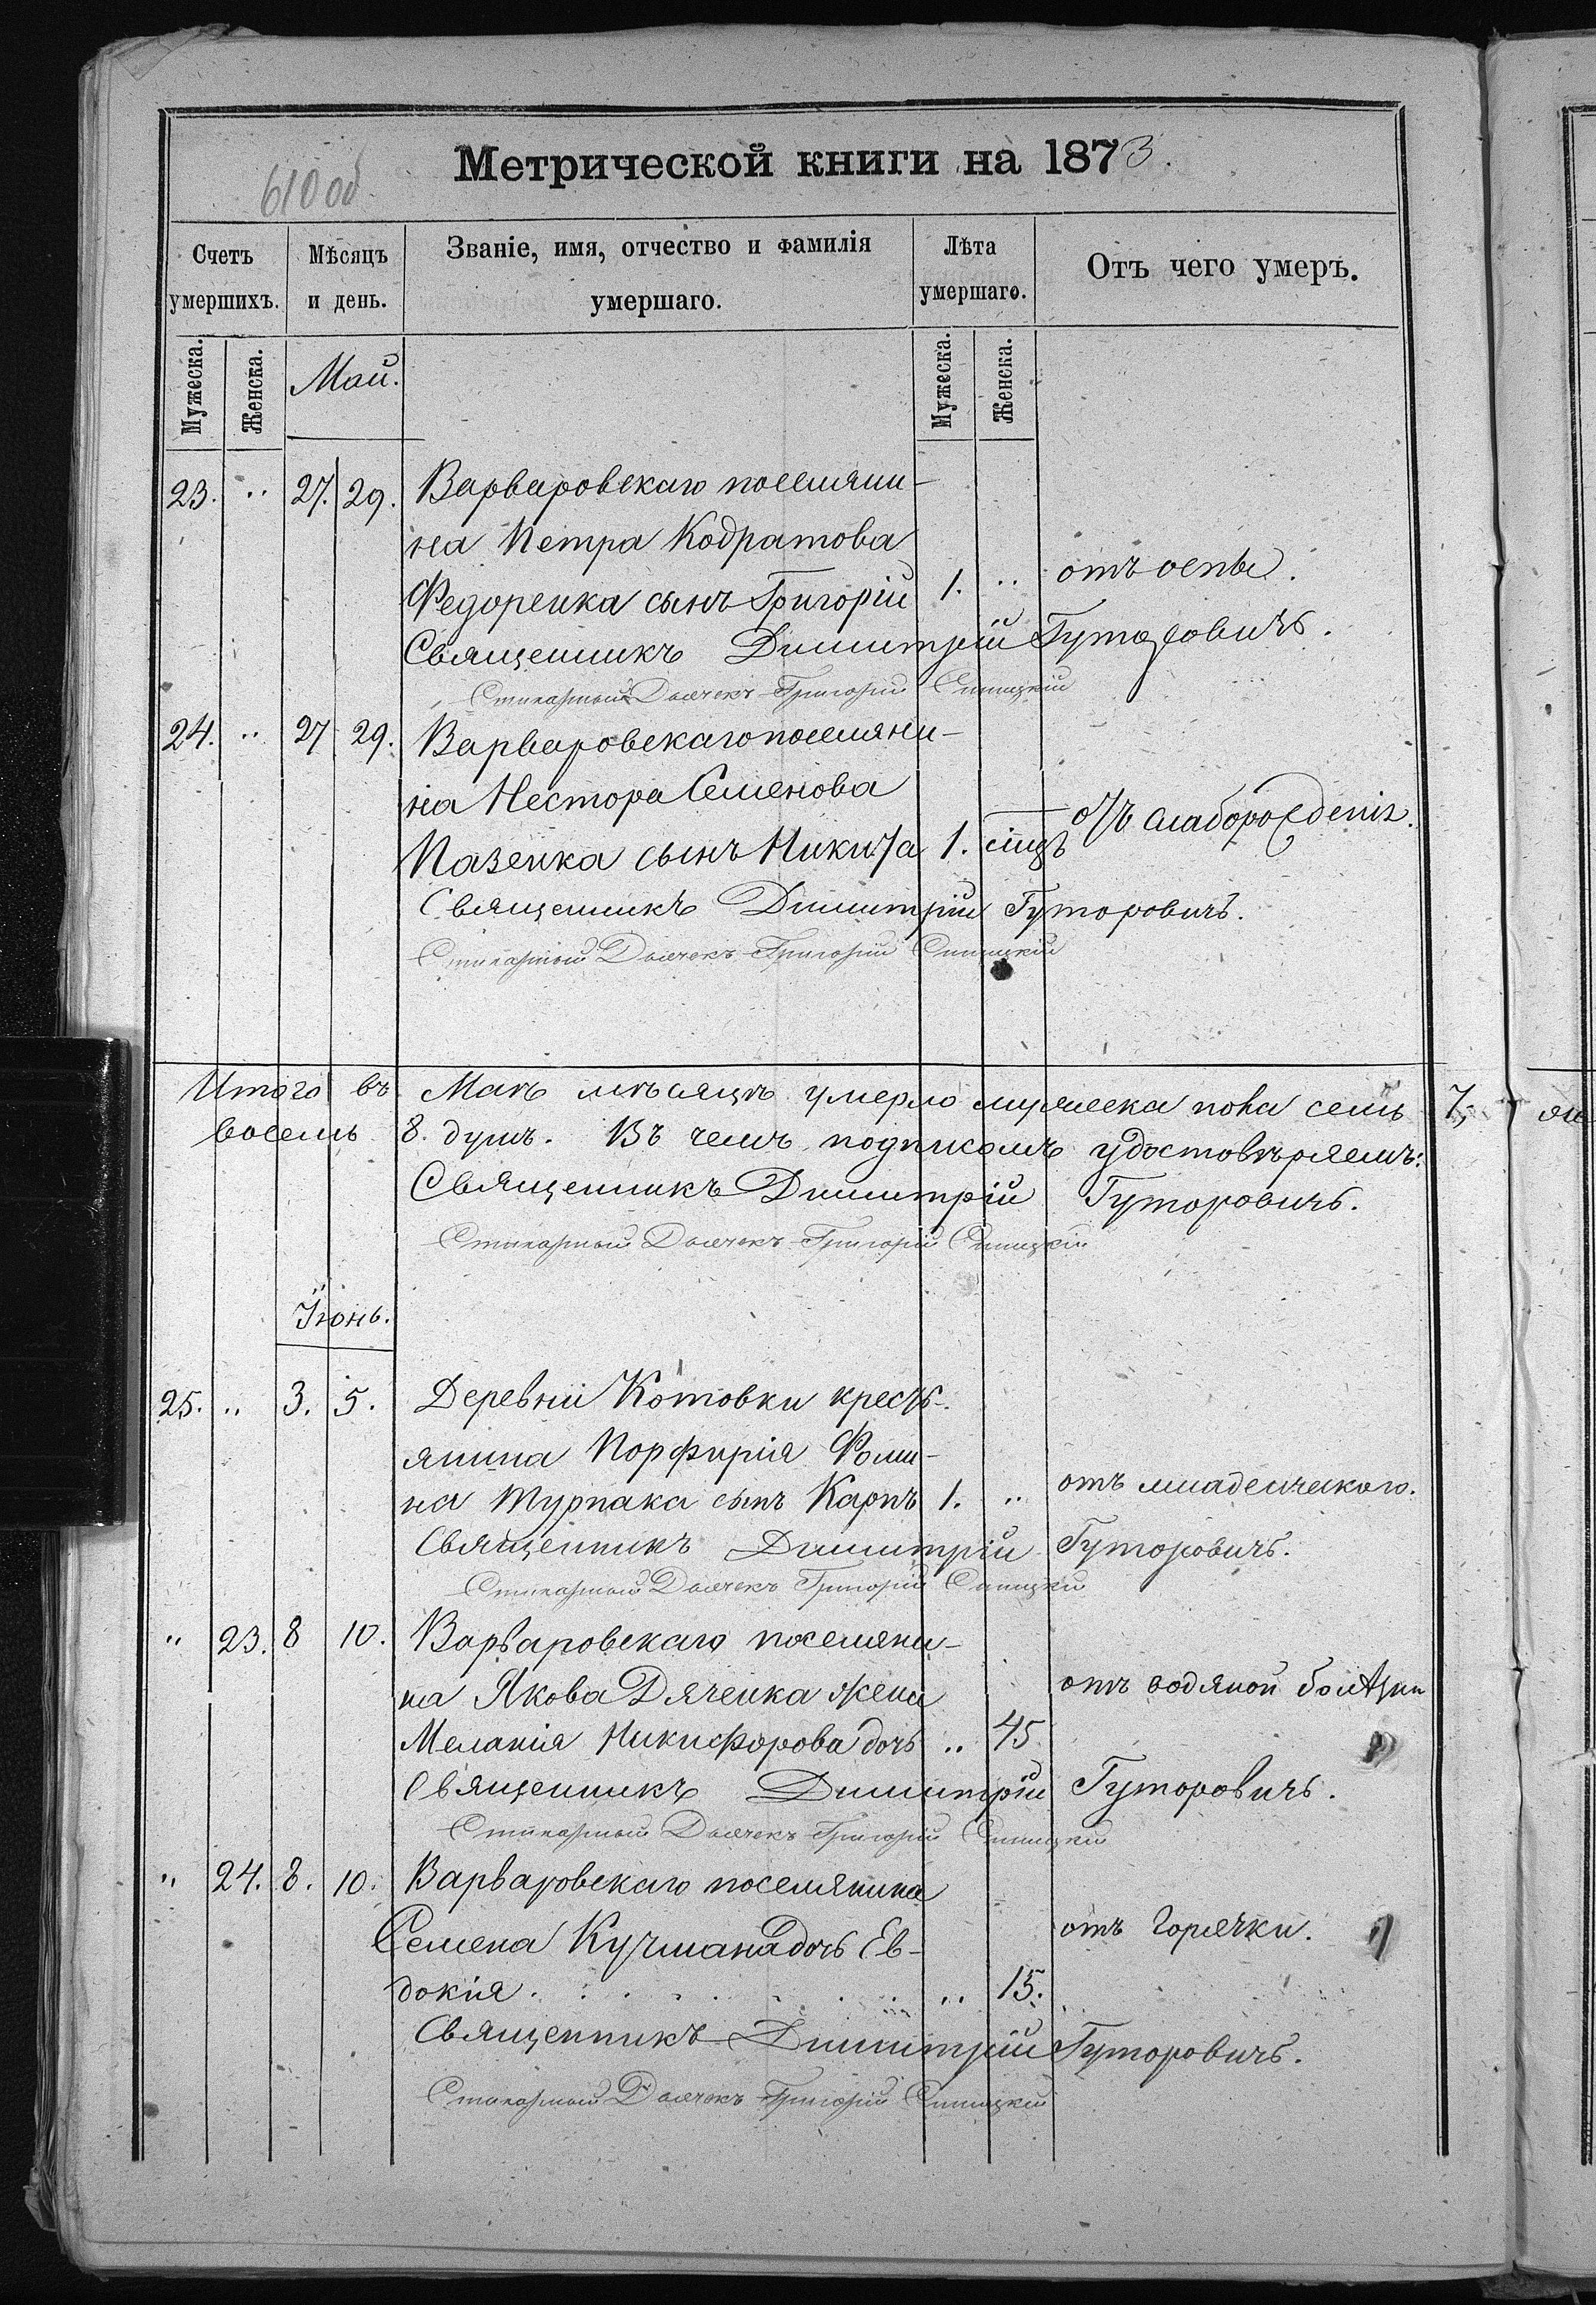 610 об
Метрической книги на 1873.
Счетъ умершихъ.
Мѣсяцъ и день.
Званіе, имя, отчество и фамилія умершаго.
Лѣта умершаго.
Отъ чего умеръ.
Мужеска.
Женска.
Май.
Мужеска.
Женска.
23. " 27. 29. Варваровскаго поселяни-
на Петра Кодратова
Федоренка сынъ Григорій 1. " отъ оспы.
Священникъ Димитрій Гуторовичъ.
Стихарный Дьячекъ Григорій
24. " 27 29. Варваровскаго поселяни-
на Нестора Семенова
Пазенка сынъ Никита 1. мѣсяцъ отъ слаборожденія.
Священникъ Димитрій Гуторовичъ.
Стихарный Дьячекъ Григорій
Итого въ Маѣ мѣсяцѣ умерло мужеска пола семь 7,
восемь 8. душъ. Въ чемъ подписомъ удостовѣряемъ:
Священникъ Димитрій Гуторовичъ.
Стихарный Дьячекъ Григорій
Іюнь.
25. " 3. 5. Деревни Котовки кресть-
янина Порфирія Фоми-
на Турпака сынъ Карпъ 1. " отъ младенческаго.
Священникъ Димитрій Гуторовичъ.
Стихарный Дьячекъ Григорій
" 23. 8 10. Варваровскаго поселяни-
на Якова Дяченка жена отъ водяной болѣзни
Меланія Никифорова дочь " 45
Священникъ Димитрій Гуторовичъ.
Стихарный Дьячекъ Григорій
" 24. 8. 10. Варваровскаго поселянина
Семена Кучмана дочь Ев- отъ Горячки.
докія . . . . . . . " 15.
Священникъ Димитрій Гуторовичъ.
Стихарный Дьячекъ Григорій